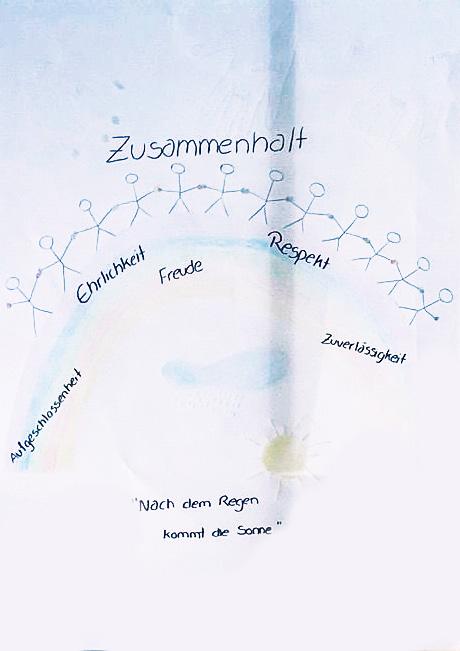 Zusammenhalt
Ehrlichkeit
Freude
Respekt
Zuverlässigkeit
Aufgeschlossenheit
"Nach dem Regen
kommt die Sonne"